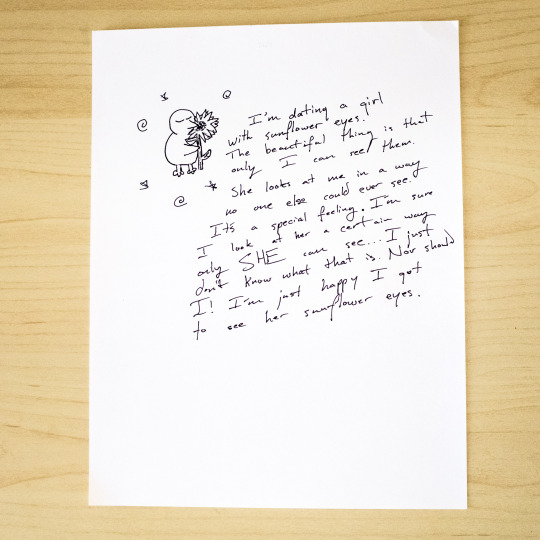 I'm dating a girl
with sunflower eyes.
The beautiful thing is that
only I can see them.
She looks at me in a way
no one else could ever see.
It's a special feeling. I'm sure
I look at her a certain way
only SHE can see... I just
don't know what that is. Nor should
I! I'm just happy I got
to see her sunflower eyes.